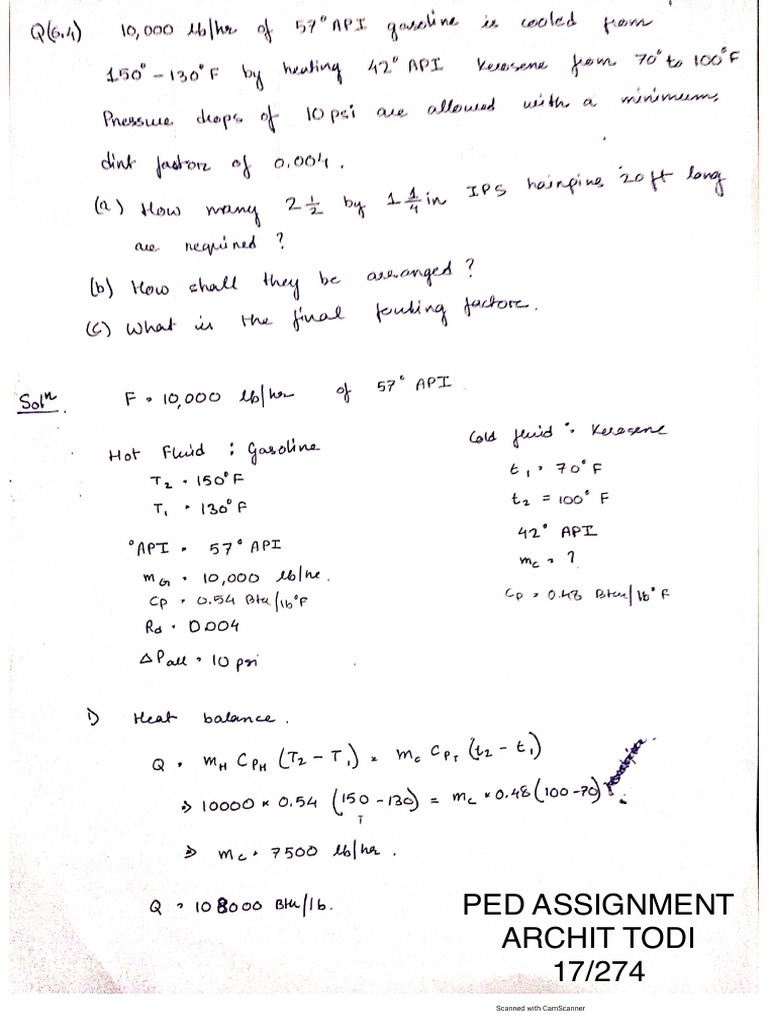 Q(6.4) 10,000 lb/hr of 57° API gasoline is cooled from
150° - 130° F by heating 42° API Kerosene from 70° to 100° F
Pressure drops of 10 psi are allowed with a minimum
dirt factor of 0.004.
(a) How many 2 1/2 by 1 1/4 in IPS hairpins 20 ft long
are required ?
(b) How shall they be arranged ?
(c) What is the final fouling factor.
Solⁿ. F = 10,000 lb/hr of 57° API
Hot Fluid : Gasoline
T₂ = 150°F
T₁ = 130°F
°API = 57° API
mG = 10,000 lb/hr.
Cp = 0.54 Btu/lb°F
Rd = 0.004
ΔPall = 10 psi
Cold fluid : Kerosene
t₁ = 70°F
t₂ = 100° F
42° API
mc = ?
Cp = 0.48 Btu/lb°F
1) Heat balance.
Q = mH CPH (T₂ - T₁) = mc CPT (t₂ - t₁)
⇒ 10000 × 0.54 (150 - 130) = mc × 0.48 (100 - 70)
⇒ mc = 7500 lb/hr.
Q = 108000 Btu/lb.
PED ASSIGNMENT
ARCHIT TODI
17/274
Scanned with CamScanner